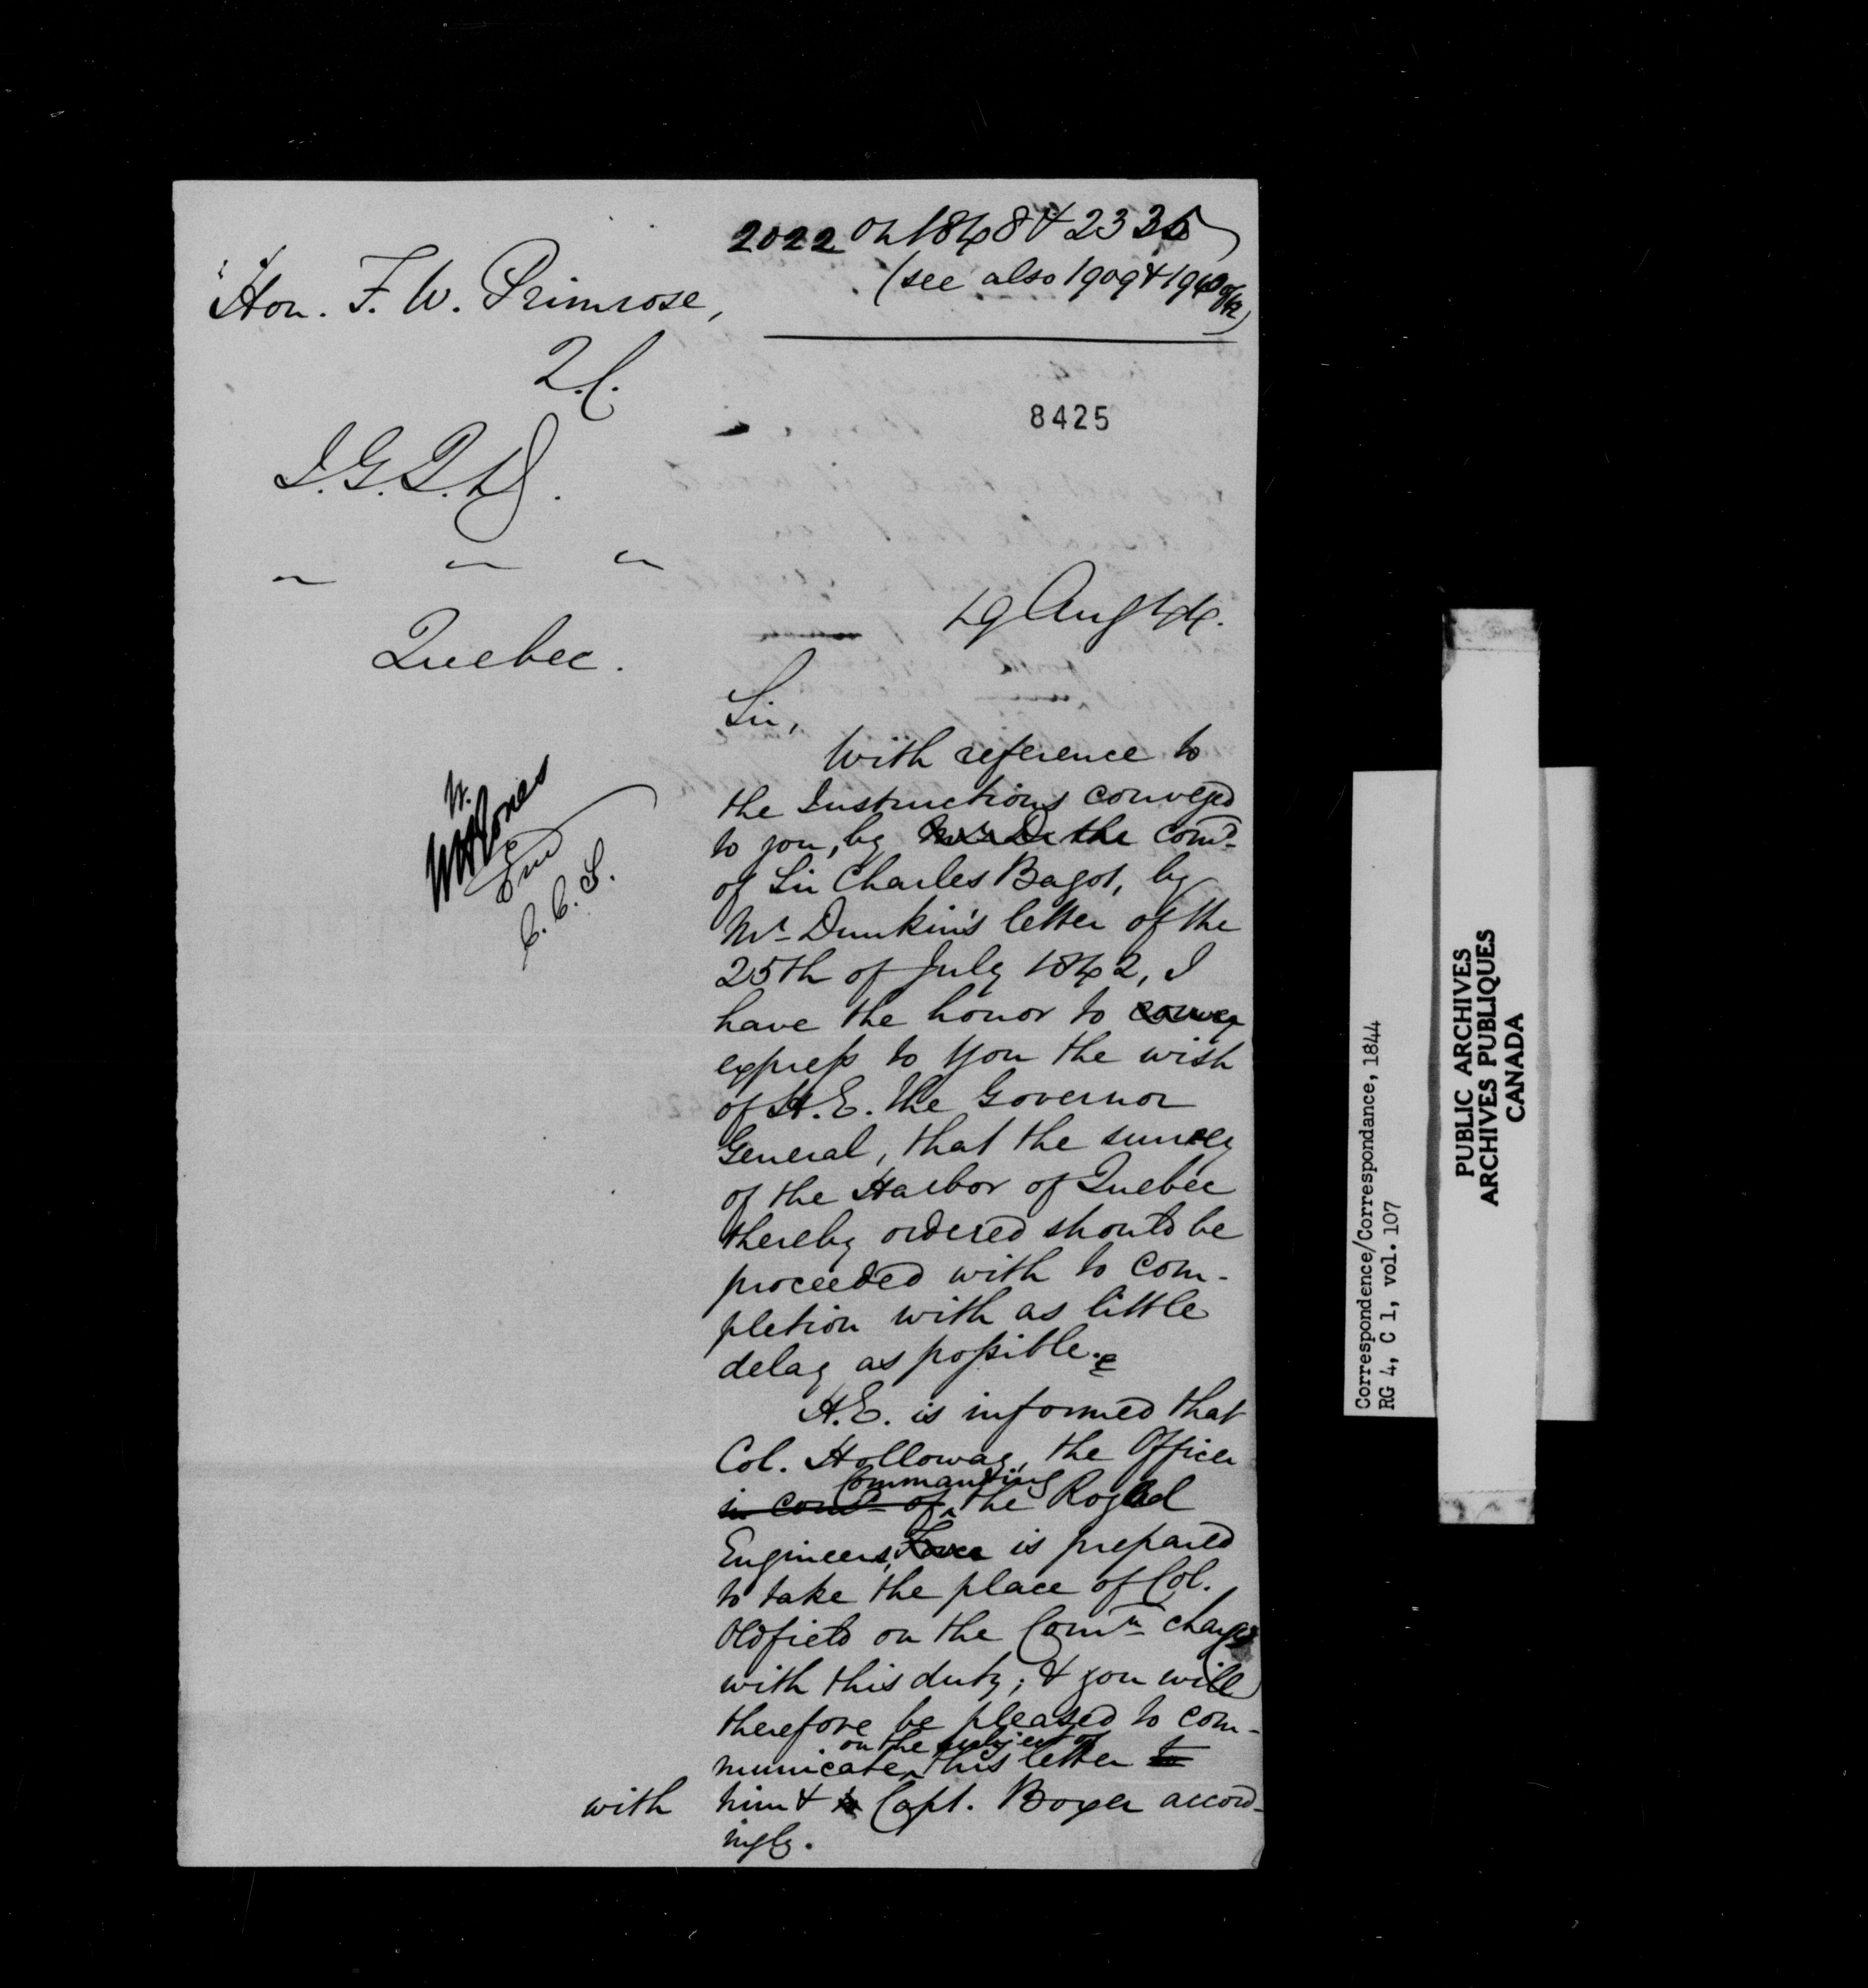 2022 on 1848 & 2335
(see also 1909 & 1940 of /42)
Hon. F. W. Primrose,
Q.C.
I.G.Q.D.
Quebec.
8425
19 Aug 44.
Sir,
With reference to
the Instructions conveyed
to you, by the comd
of Sir Charles Bagot, by
Mr Dunkin's letter of the
25th of July 1842, I
have the honor to convey
express to you the wish
of H.E. the Governor
General, that the survey
of the Harbor of Quebec
thereby ordered should be
proceeded with to com-
pletion with as little
delay as possible.
H.E. is informed that
Col. Holloway, the Officer
Commanding
in comd of the Royal
Engineers, Force is prepared
to take the place of Col.
Oldfield on the Comn charged
with this duty; & you will
therefore be pleased to com-
on the subject of
municate this letter to
with him & to Capt. Boxer accord-
ingly.
C.C.S.
Correspondence/Correspondance, 1844
RG 4, C 1, vol. 107
PUBLIC ARCHIVES
ARCHIVES PUBLIQUES
CANADA